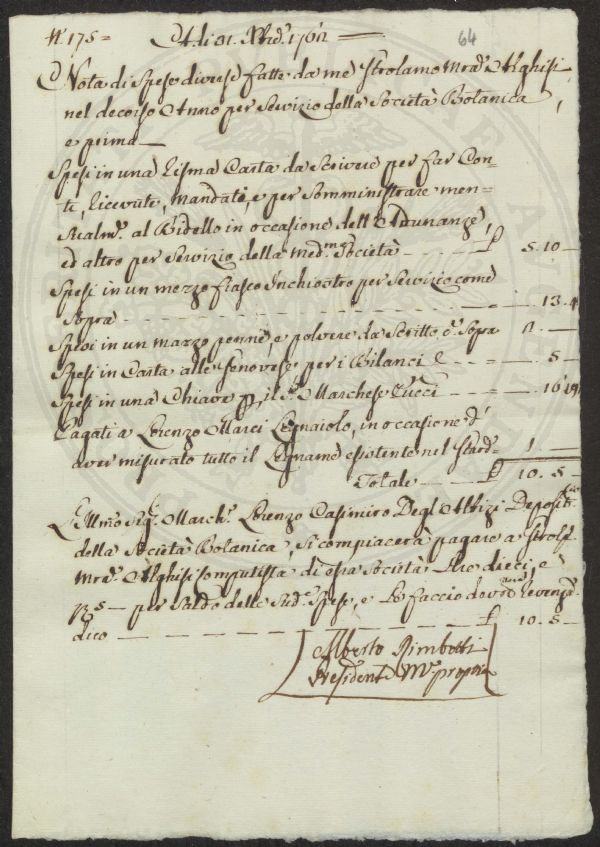 N. 175 = Adi 31. Xbre. 1762 64
Nota di Spese diverse fatte da me Girolamo Mra. Alghisi
nel decorso Anno per Servizio della Società Botanica
e prima
Spesi in una Lisma Carta da Scrivere per far Con=
ti, Ricevute, Mandati, e per Somministrare men=
sualm. al Bidello in occasione dell'Adunanze,
ed altro per Servizio della Med.ma Società £ 5. 10 —
Spesi in un mezzo fiasco Inchiostro per Servizio come
Sopra — 13. 4
Spesi in un mazzo penne, e polvere da Scritto, c. Sopra
Spesi in Carta alla Genovese per i Bilanci — 5 —
Spesi in una Chiave p. il S. Marchese Pucci — 16
Pagati a Lorenzo Marci Legnaiolo, in occasione d'
aver misurato tutto il Legname esistente nel Giard. 1 —
Totale £ 10. 5 —
Ill.mo Sig. March. Lorenzo Casimiro Degl'Albizi Deposit.
della Società Botanica, Si compiacerà pagare a Girol.
Mra. Alghisi Computista di essa Società Lire dieci, e
5 — per Saldo delle Sud. Spese, e Le faccio dovuta Reverenza
dico £ 10. 5 —
Alberto Rimbotti
Presidente M. propria